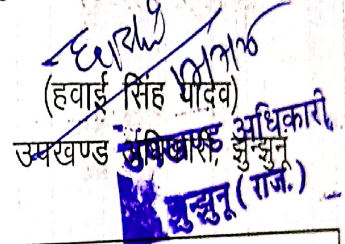 (हवाई सिंह यादव)
उपखण्ड अधिकारी, झुन्झुनू
उपखण्ड अधिकारी,
झुन्झुनू (राज.)